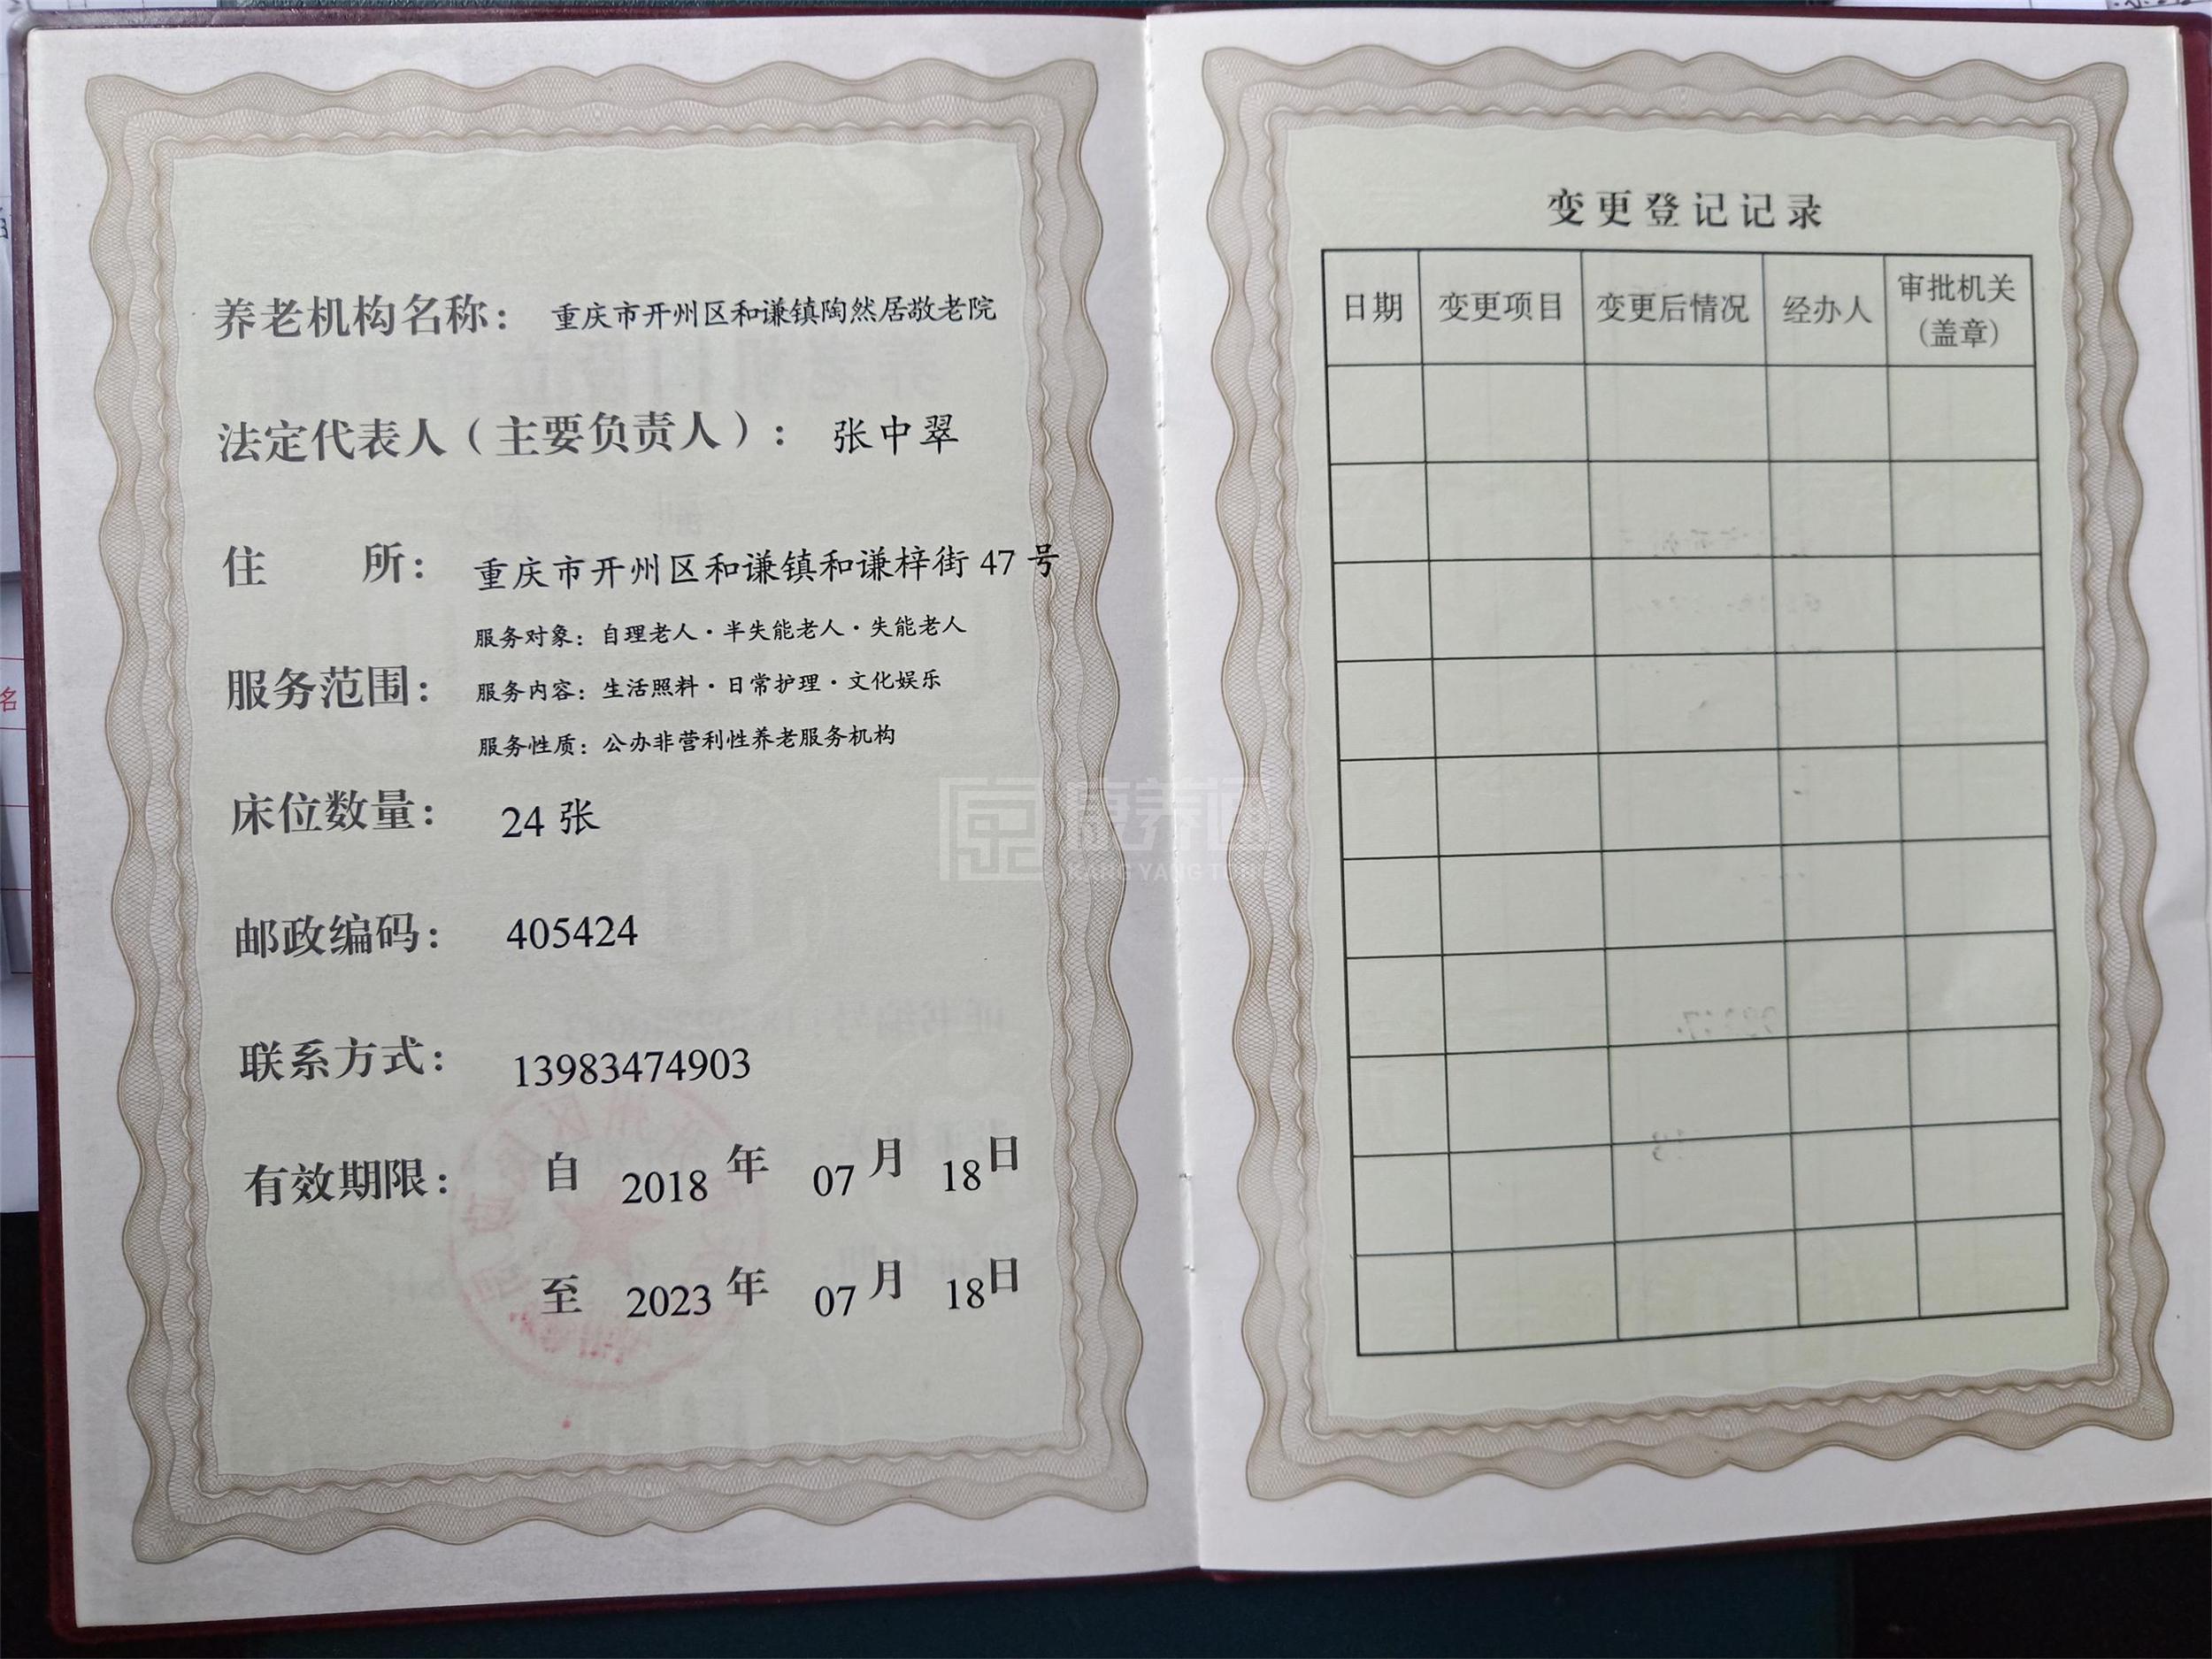 养老机构名称： 重庆市开州区和谦镇陶然居敬老院
法定代表人（主要负责人）： 张中翠
住 所： 重庆市开州区和谦镇和谦梓街 47 号
服务对象：自理老人·半失能老人·失能老人
服务范围：
服务内容：生活照料·日常护理·文化娱乐
服务性质：公办非营利性养老服务机构
床位数量： 24 张
邮政编码： 405424
联系方式： 13983474903
有效期限： 自 2018 年 07 月 18 日
至 2023 年 07 月 18 日
变更登记记录
日期 变更项目 变更后情况 经办人 审批机关
（盖章）
康养通
KANG YANG TONG